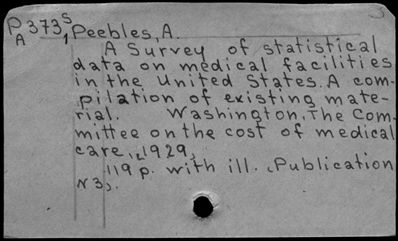 PA373S, Peebles, A.
A Survey of statistical
data on medical facilities
in the United States. A com-
pilation of existing mate-
rial. Washington, The Com-
mittee on the cost of medical
care, 1929.
119 p. with ill. (Publication
N 3).